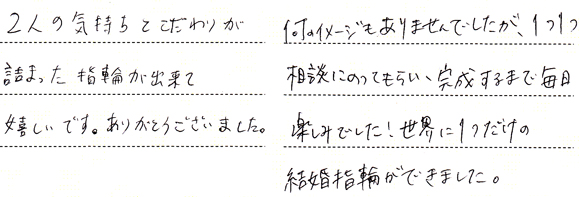 2人の気持ちとこだわりが
詰まった指輪が出来て
嬉しいです。ありがとうございました。
何のイメージもありませんでしたが、1つ1つ
相談にのってもらい、完成するまで毎日
楽しみでした!世界に1つだけの
結婚指輪ができました。